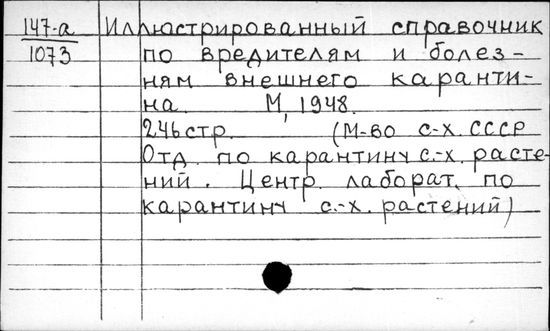 147-а Иллюстрированный справочник
1073 по вредителям и болез-
ням внешнего каранти-
на М, 1948.
246 стр. (М-во с-х. СССР
Отд. по карантину с.-х. расте-
ний. Центр. лаборат. по
карантину с.-х. растений)